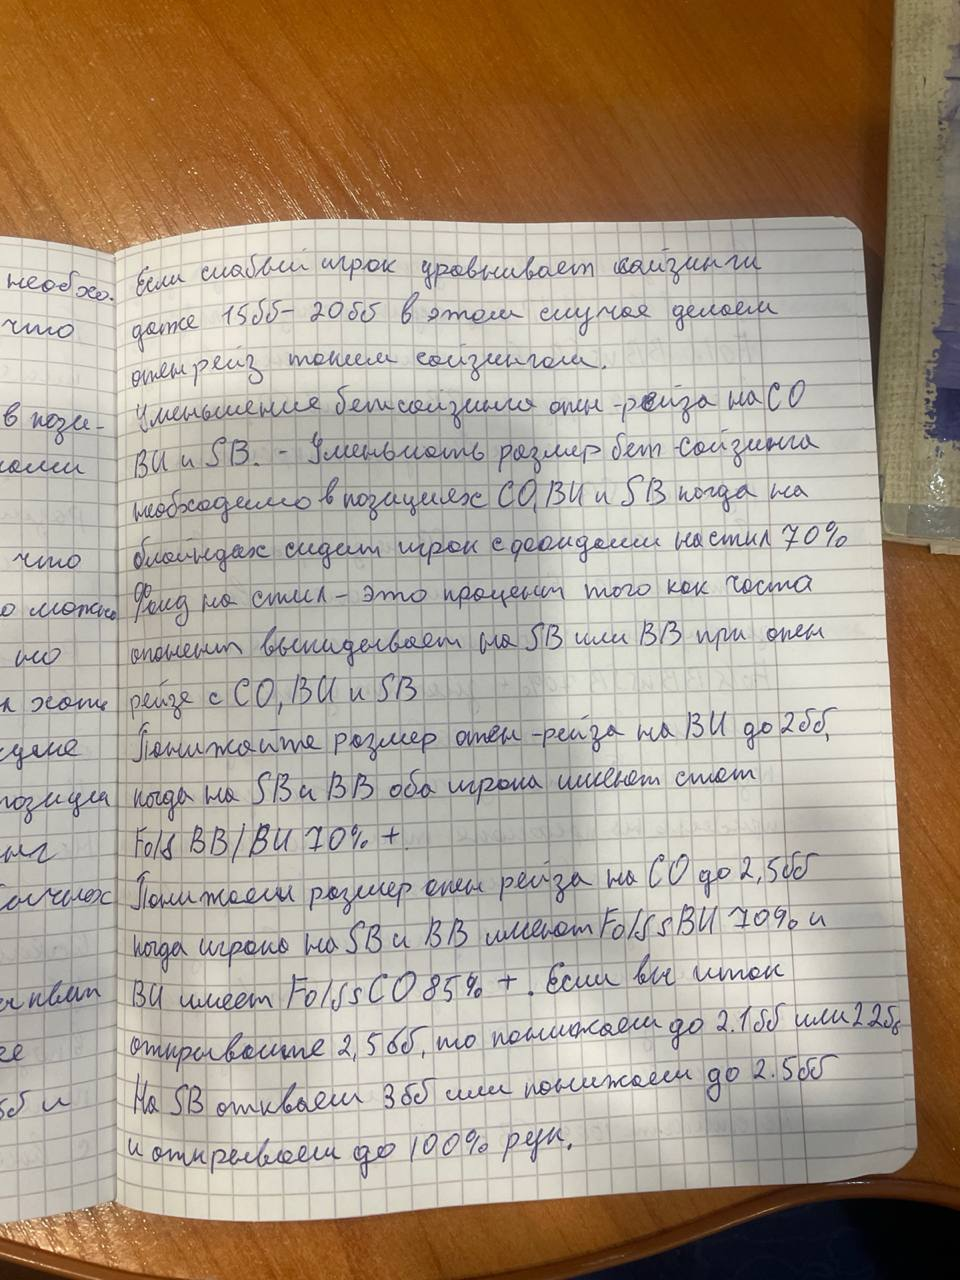 необхо.
что
в пози-
что
о можно
но
позиция
Если слабый игрок уравнивает сайзинги
даже 15бб-20бб в этом случае делаем
опен рейз таким сайзингом.
Уменьшение бетсайзинга опен-рейза на CO
BU и SB. - Уменьшать размер бет-сайзинга
необходимо в позициях CO, BU и SB когда на
блайндах сидят игрок с фолдами на стил 70%
Фолд на стил - это процент того как часто
опонент выкидывает на SB или BB при опен
рейзе с CO, BU и SB
Понижайте размер опен-рейза на BU до 2бб,
когда на SB и BB оба игрока имеют стат
Fold BB/BU 70% +
Понижаем размер опен рейза на CO до 2,5бб
когда игроки на SB и BB имеют FoldsBU 70% и
BU имеет FoldsCO 85% +. Если вы итак
открываете 2,5бб, то понижаем до 2.1бб или 2.2бб
На SB откваем 3бб или понижаем до 2.5бб
и открываем до 100% рук.